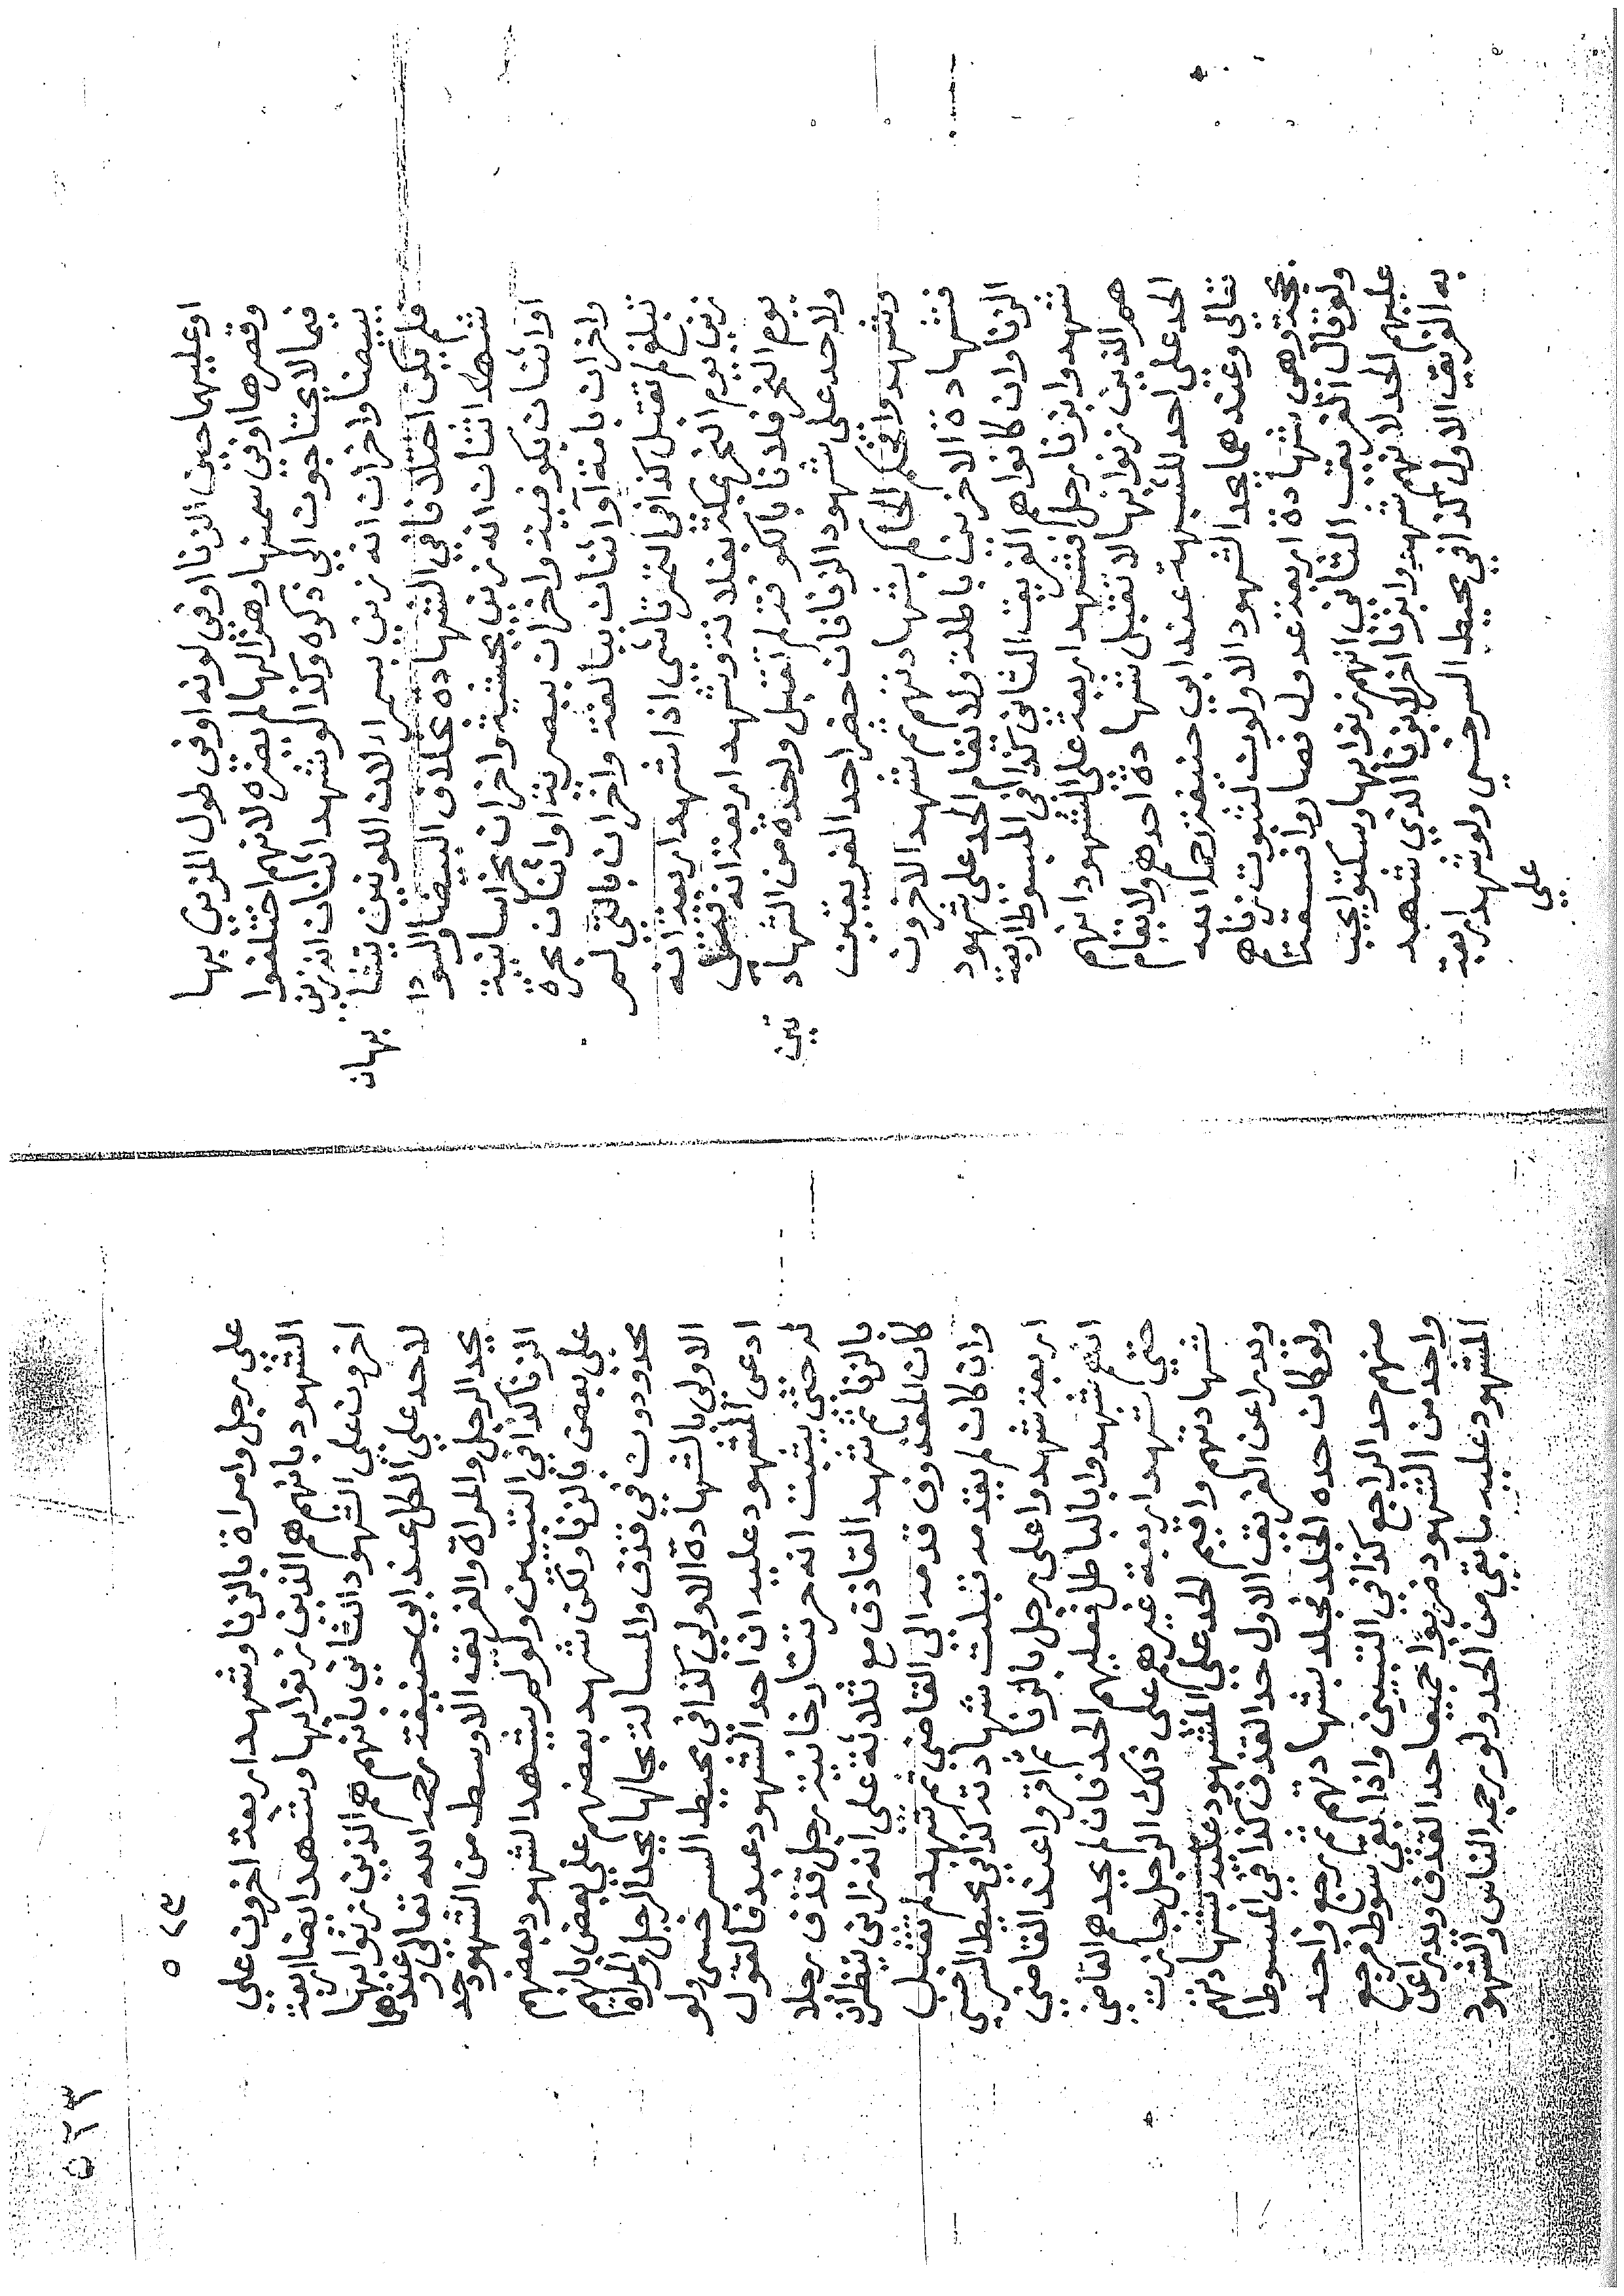 او عليهما حين الزنا او في لونه او في طول المزني بها
وقصرها او في سمنها وهزالها لم يضره لانهم اختلفوا
فيما لا يحتاجون الي ذكره وكذا لو شهد اثنان انه زني
ببيضا واخران انه زني بسمراء لان اللونين يتشا بهان
فلم يكن اختلافا في الشهاده بخلاف البيضا والسودا
شهد اثنان انه زني بحبشية واخران بخراسانية
او اثنان بكوفية واخران ببصرية او اثنان بحرة
واخران بامة او اثنان ببالغة واخران بالتي لم
تبلغ لم تقبل كذا في التمرتاشي اذا شهد اربعة انه
زني يوم النحر بمكة بفلانة وشهد اربعة انه قتل
يوم النحر فلانا بالكوفة لم تقبل واحدة من الشهاد تين
ولا حد علي شهود الزنا فان حضر احد الفريقين
وشهدوا فحكم الحاكم بشهادتهم ثم شهد الاخرون
فشهادة الاخرين باطلة ولا يقام الحد علي شهود
الزنا وان كانوا هم الفريق الثاني كذا في المبسوط اربعة
شهدوا بزنا رجل فشهد اربعة علي الشهود انهم
هم الذين زنوا بها لا تقبل شهادة احدهم ولا يقام
الحد علي احد للشبهة عند ابي حنيفة رحمه الله
تعالي وعندهما يحد الشهود الاولون لثبوت زناهم
بحجة وهي شهادة اربعة عدول فصاروا فسقة
ولو قال الفريق الثاني انهم زنوا بها وسكتوا يجب
عليهم الحد لانهم شهدوا بزنا اخر لا بزنا الذي شهد
به الفريق الاول كذا في محيط السرخسي ولو شهد اربعة
علي
٥٢٣
على رجل وامراة بالزنا وشهد اربعة اخرون علي
الشهود بانهم هم الذين زنوا بها وشهد ايضا اربعة
اخرون علي الشهود الثاني بانهم هم الذين زنوا بها
لا حد علي الكل عند ابي حنيفة رحمه الله تعالى وعندهما
يحد الرجل والمراة والفريقه الاوسط من الشهود حد
الزنا كذا في التبيين ولو لم يشهد الشهود بعضهم
علي بعض بالزنا ولكن شهد بعضهم علي بعض بانهم
محدودون في قذف والمسالة بحالها يحد الرجل والمراة
الاولى بالشهادة الاولي كذا في محيط السرخسي ولو
ادعي المشهود عليه ان احد الشهود عبد فالقول
له حتي يثبت انه حر تتارخانية رجل قذف رجلا
بالزنا ثم شهد القاذف مع ثلاثة علي انه زاني ينظر ان
كان المقذوف قدمه الي القاضي ثم شهد لم تقبل
وان كان لم يقدمه قبلت شهادته كذا في محيط السرخسي
اربعة شهدوا علي رجل بالزنا ثم اقروا عند القاضي
انهم شهدوا بالباطل فعليهم الحد فان لم يحدهم القاضي
حتي شهد اربعة غيرهم علي ذلك الرجل جازت
شهادتهم واقيم الحد علي المشهود عليه بشهادتهم
ويدرا عن الفريق الاول حد القذف كذا في المبسوط
ولو كان حده الجلد فجلد بشهادتهم ثم رجع واحد
منهم حد الراجع كذا في التبيين واذا بقي سوط فرجع
واحد من الشهود ضربوا جميعا حد القذف ويدرا عن
المشهود عليه ما بقي من الحد ولو رجمه الناس والشهود